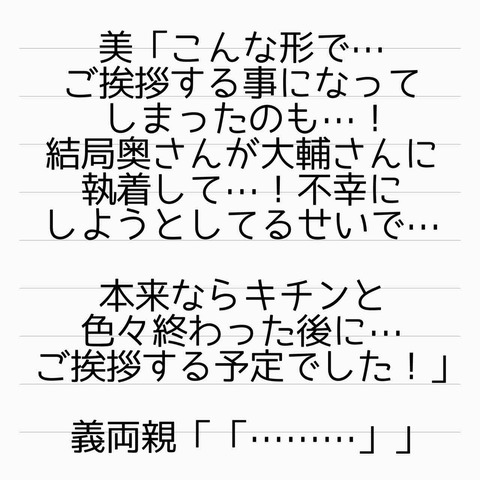 美「こんな形で…
ご挨拶する事になって
しまったのも…！
結局奥さんが大輔さんに
執着して…！不幸に
しようとしてるせいで…
本来ならキチンと
色々終わった後に…
ご挨拶する予定でした！」
義両親「「………」」